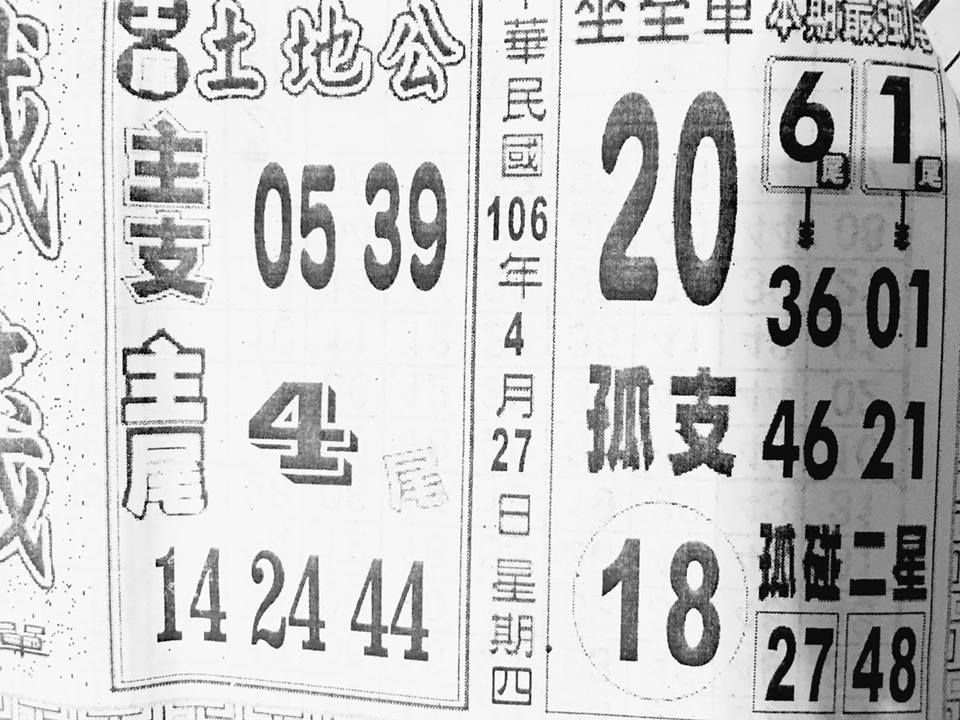 土地公
主支
05 39
主尾
4尾
14 24 44
中華民國106年4月27日星期四
坐全車
20
孤支
18
本期最強尾
6尾 1尾
36 01
46 21
孤碰二星
27 48